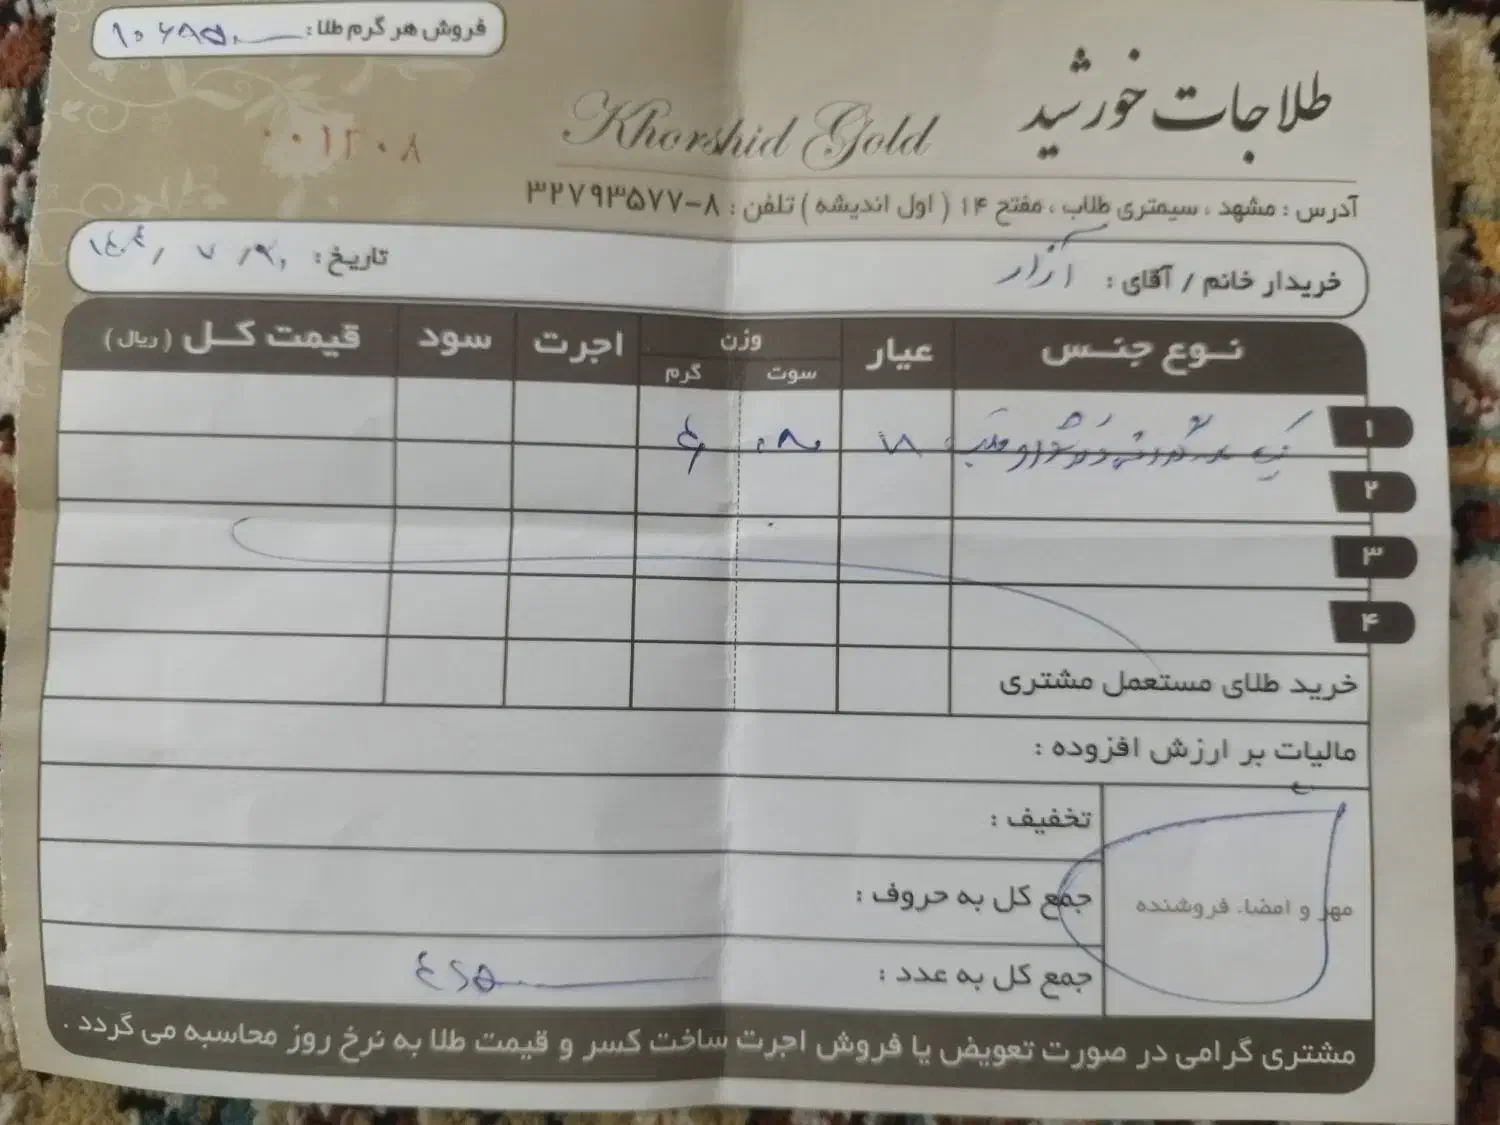 فروش هر گرم طلا :
طلاجات خورشید
Khorshid Gold
۰۰۱۲۰۸
آدرس : مشهد ، سیمتری طلاب ، مفتح ۱۴ ( اول اندیشه ) تلفن : ۸-۳۲۷۹۳۵۷۷
خریدار خانم / آقای :
تاریخ :
نوع جنس عیار وزن اجرت سود قیمت کل ( ریال )
سوت گرم
۱ ۱۸
۲
۳
۴
خرید طلای مستعمل مشتری
مالیات بر ارزش افزوده :
تخفیف :
جمع کل به حروف :
مهر و امضاء فروشنده
جمع کل به عدد :
مشتری گرامی در صورت تعویض یا فروش اجرت ساخت کسر و قیمت طلا به نرخ روز محاسبه می گردد .